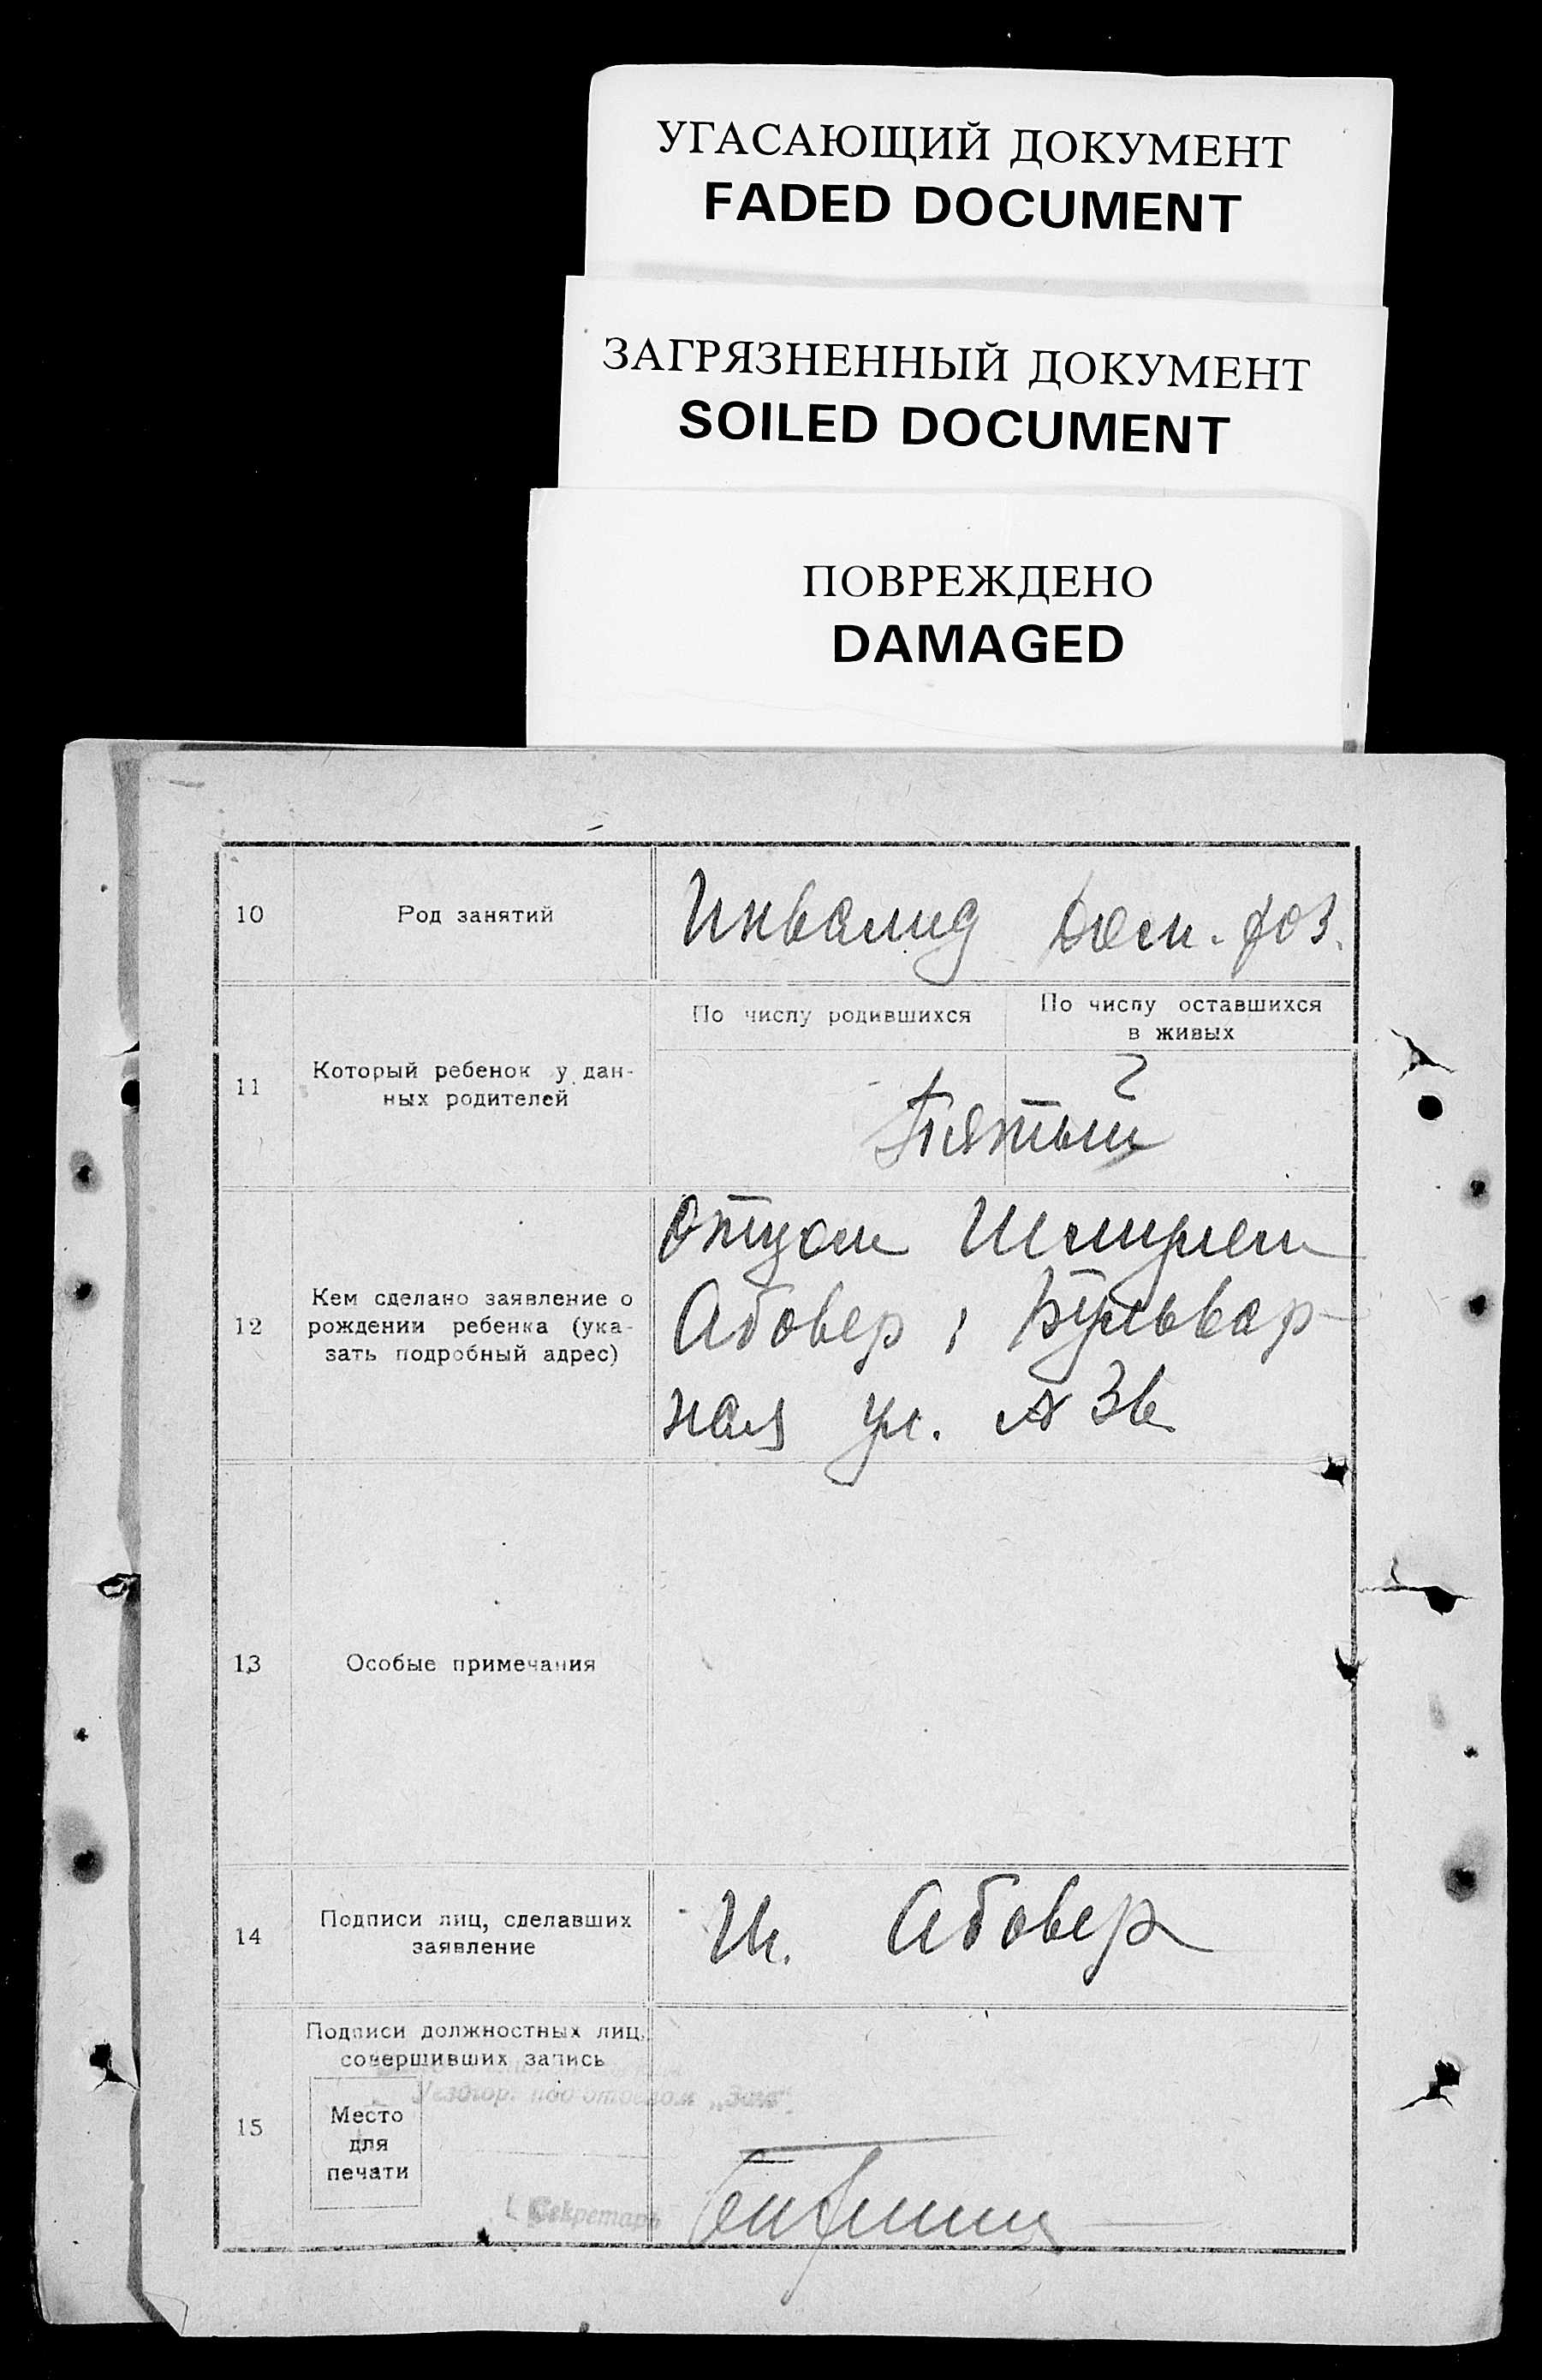 УГАСАЮЩИЙ ДОКУМЕНТ
FADED DOCUMENT
ЗАГРЯЗНЕННЫЙ ДОКУМЕНТ
SOILED DOCUMENT
ПОВРЕЖДЕНО
DAMAGED
10 Род занятий Инвалид
По числу родившихся
По числу оставшихся
в живых
11 Который ребенок у дан-
ных родителей
Пятый
12 Кем сделано заявление о
рождении ребенка (ука-
зать подробный адрес)
Отцом
Абовер, Бульвар-
ная ул. № 36
13 Особые примечания
14 Подписи лиц, сделавших
заявление
Ш. Абовер
15 Подписи должностных лиц,
совершивших запись
подотделом „Загс“
Место
для
печати
Секретарь